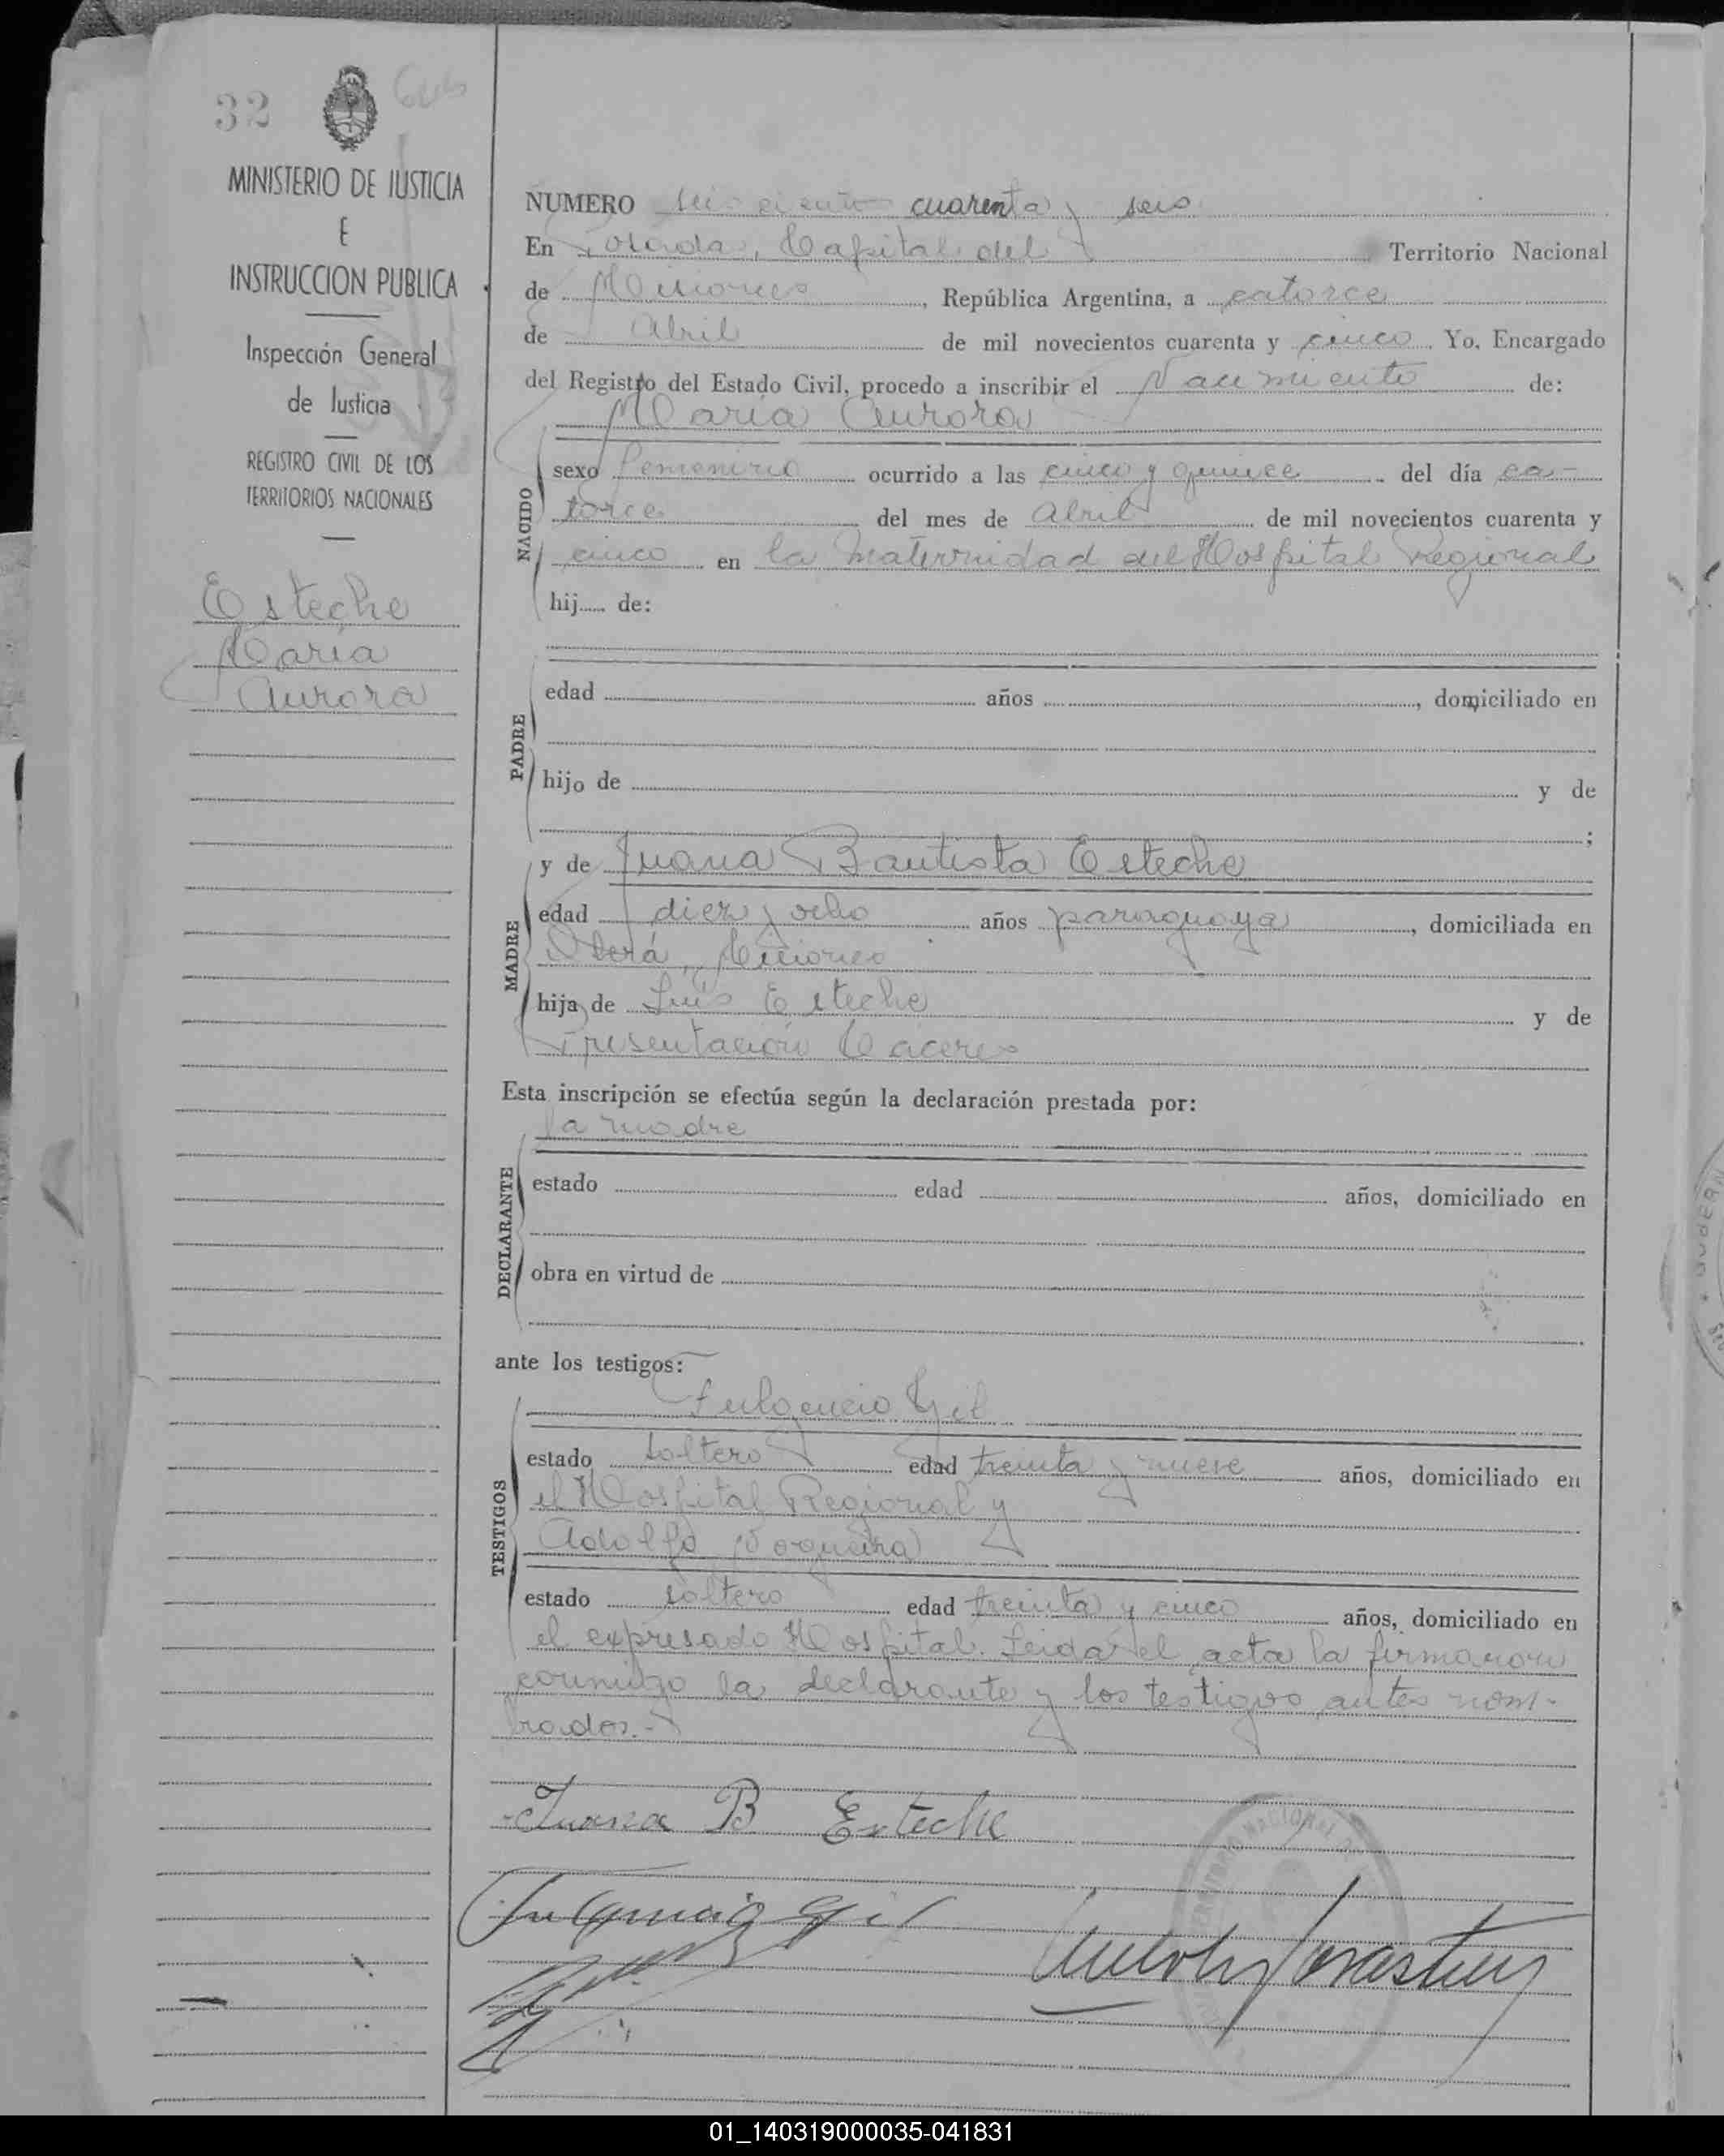 32
MINISTERIO DE JUSTICIA
E
INSTRUCCION PUBLICA
Inspección General
de Justicia
REGISTRO CIVIL DE LOS
TERRITORIOS NACIONALES
Esteche
María
Aurora
NUMERO seiscientos cuarenta y seis
En Posadas, Capital del Territorio Nacional
de Misiones, República Argentina, a catorce
de Abril de mil novecientos cuarenta y cinco. Yo, Encargado
del Registro del Estado Civil, procedo a inscribir el Nacimiento de:
María Aurora
NACIDO
sexo femenino ocurrido a las cinco y quince del día ca-
torce del mes de Abril de mil novecientos cuarenta y
cinco en la Maternidad del Hospital Regional
hij...... de:
PADRE
edad años , domiciliado en
hijo de y de
;
MADRE
y de Juana Bautista Esteche
edad diez y ocho años paraguaya, domiciliada en
Oberá, Misiones
hija de Luis Esteche y de
Presentación Cáceres
Esta inscripción se efectúa según la declaración prestada por:
la madre
DECLARANTE
estado edad años, domiciliado en
obra en virtud de
ante los testigos:
TESTIGOS
Fulgencio Gil
estado soltero edad treinta y nueve años, domiciliado en
el Hospital Regional y
Adolfo Nogueira
estado soltero edad treinta y cinco años, domiciliado en
el expresado Hospital. Leida el acta la firmaron
conmigo la declarante y los testigos antes nom-
brados.-
Juana B Esteche
Fulgencio Gil
01_140319000035-041831